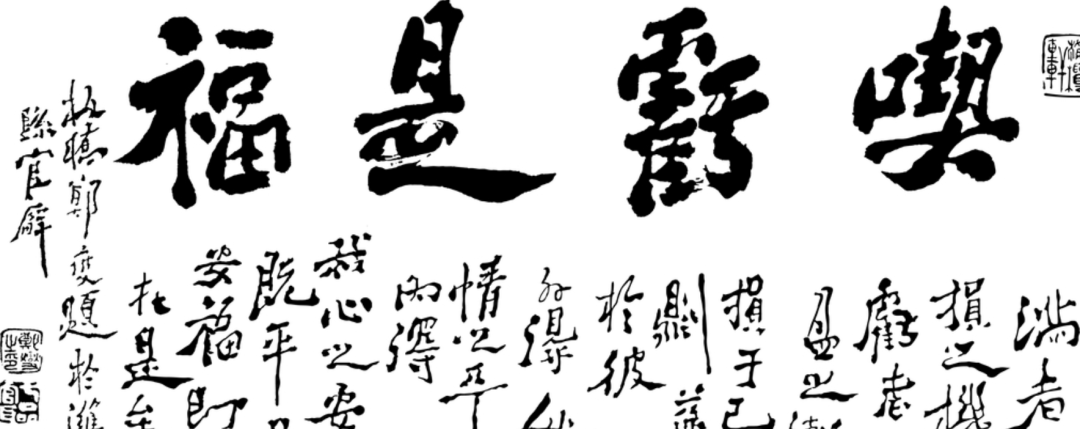 喫虧是福
滿者
損之機
虧者
盈之
損于己
則益
於彼
外得人
情之平
内得
我心之安
既平
安福即
在是矣
板橋鄭燮題於濰
縣官廨